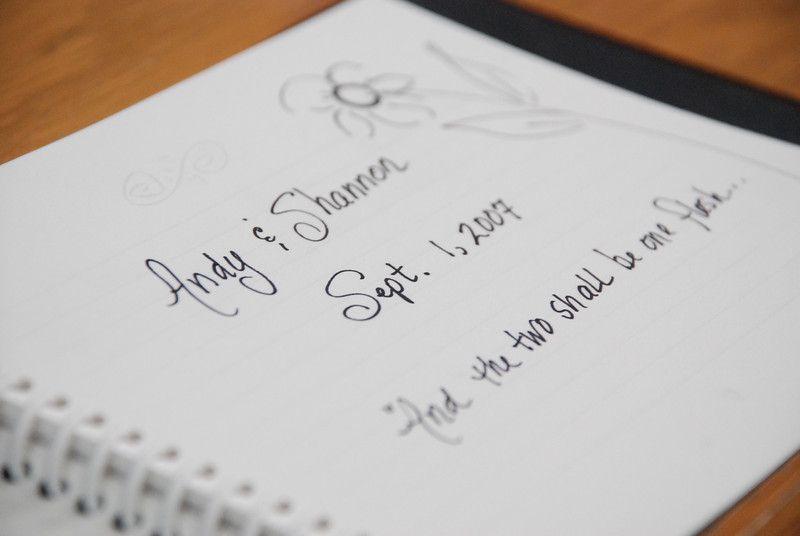 Andy & Shannon
Sept. 1, 2007
"And the two shall be one flesh...